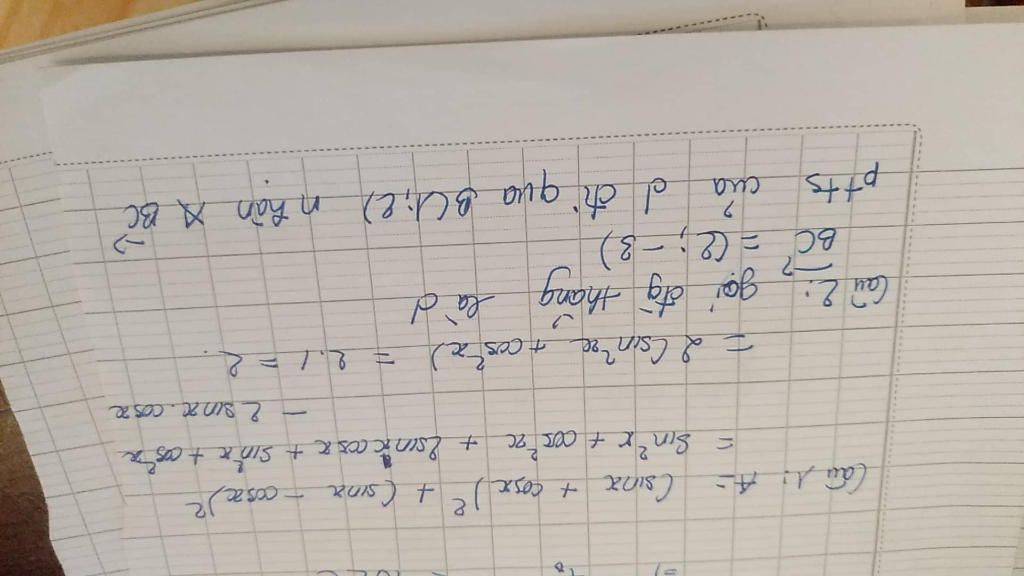 Câu 1: A = (sinx + cosx)² + (sinx - cosx)²
= sin²x + cos²x + 2sinxcosx + sin²x + cos²x
- 2sinx.cosx
= 2(sin²x + cos²x) = 2.1 = 2.
Câu 2: gọi đg thẳng là d
BC→ = (2; -3)
ptts của d đi qua B(1;2) nhận BC→